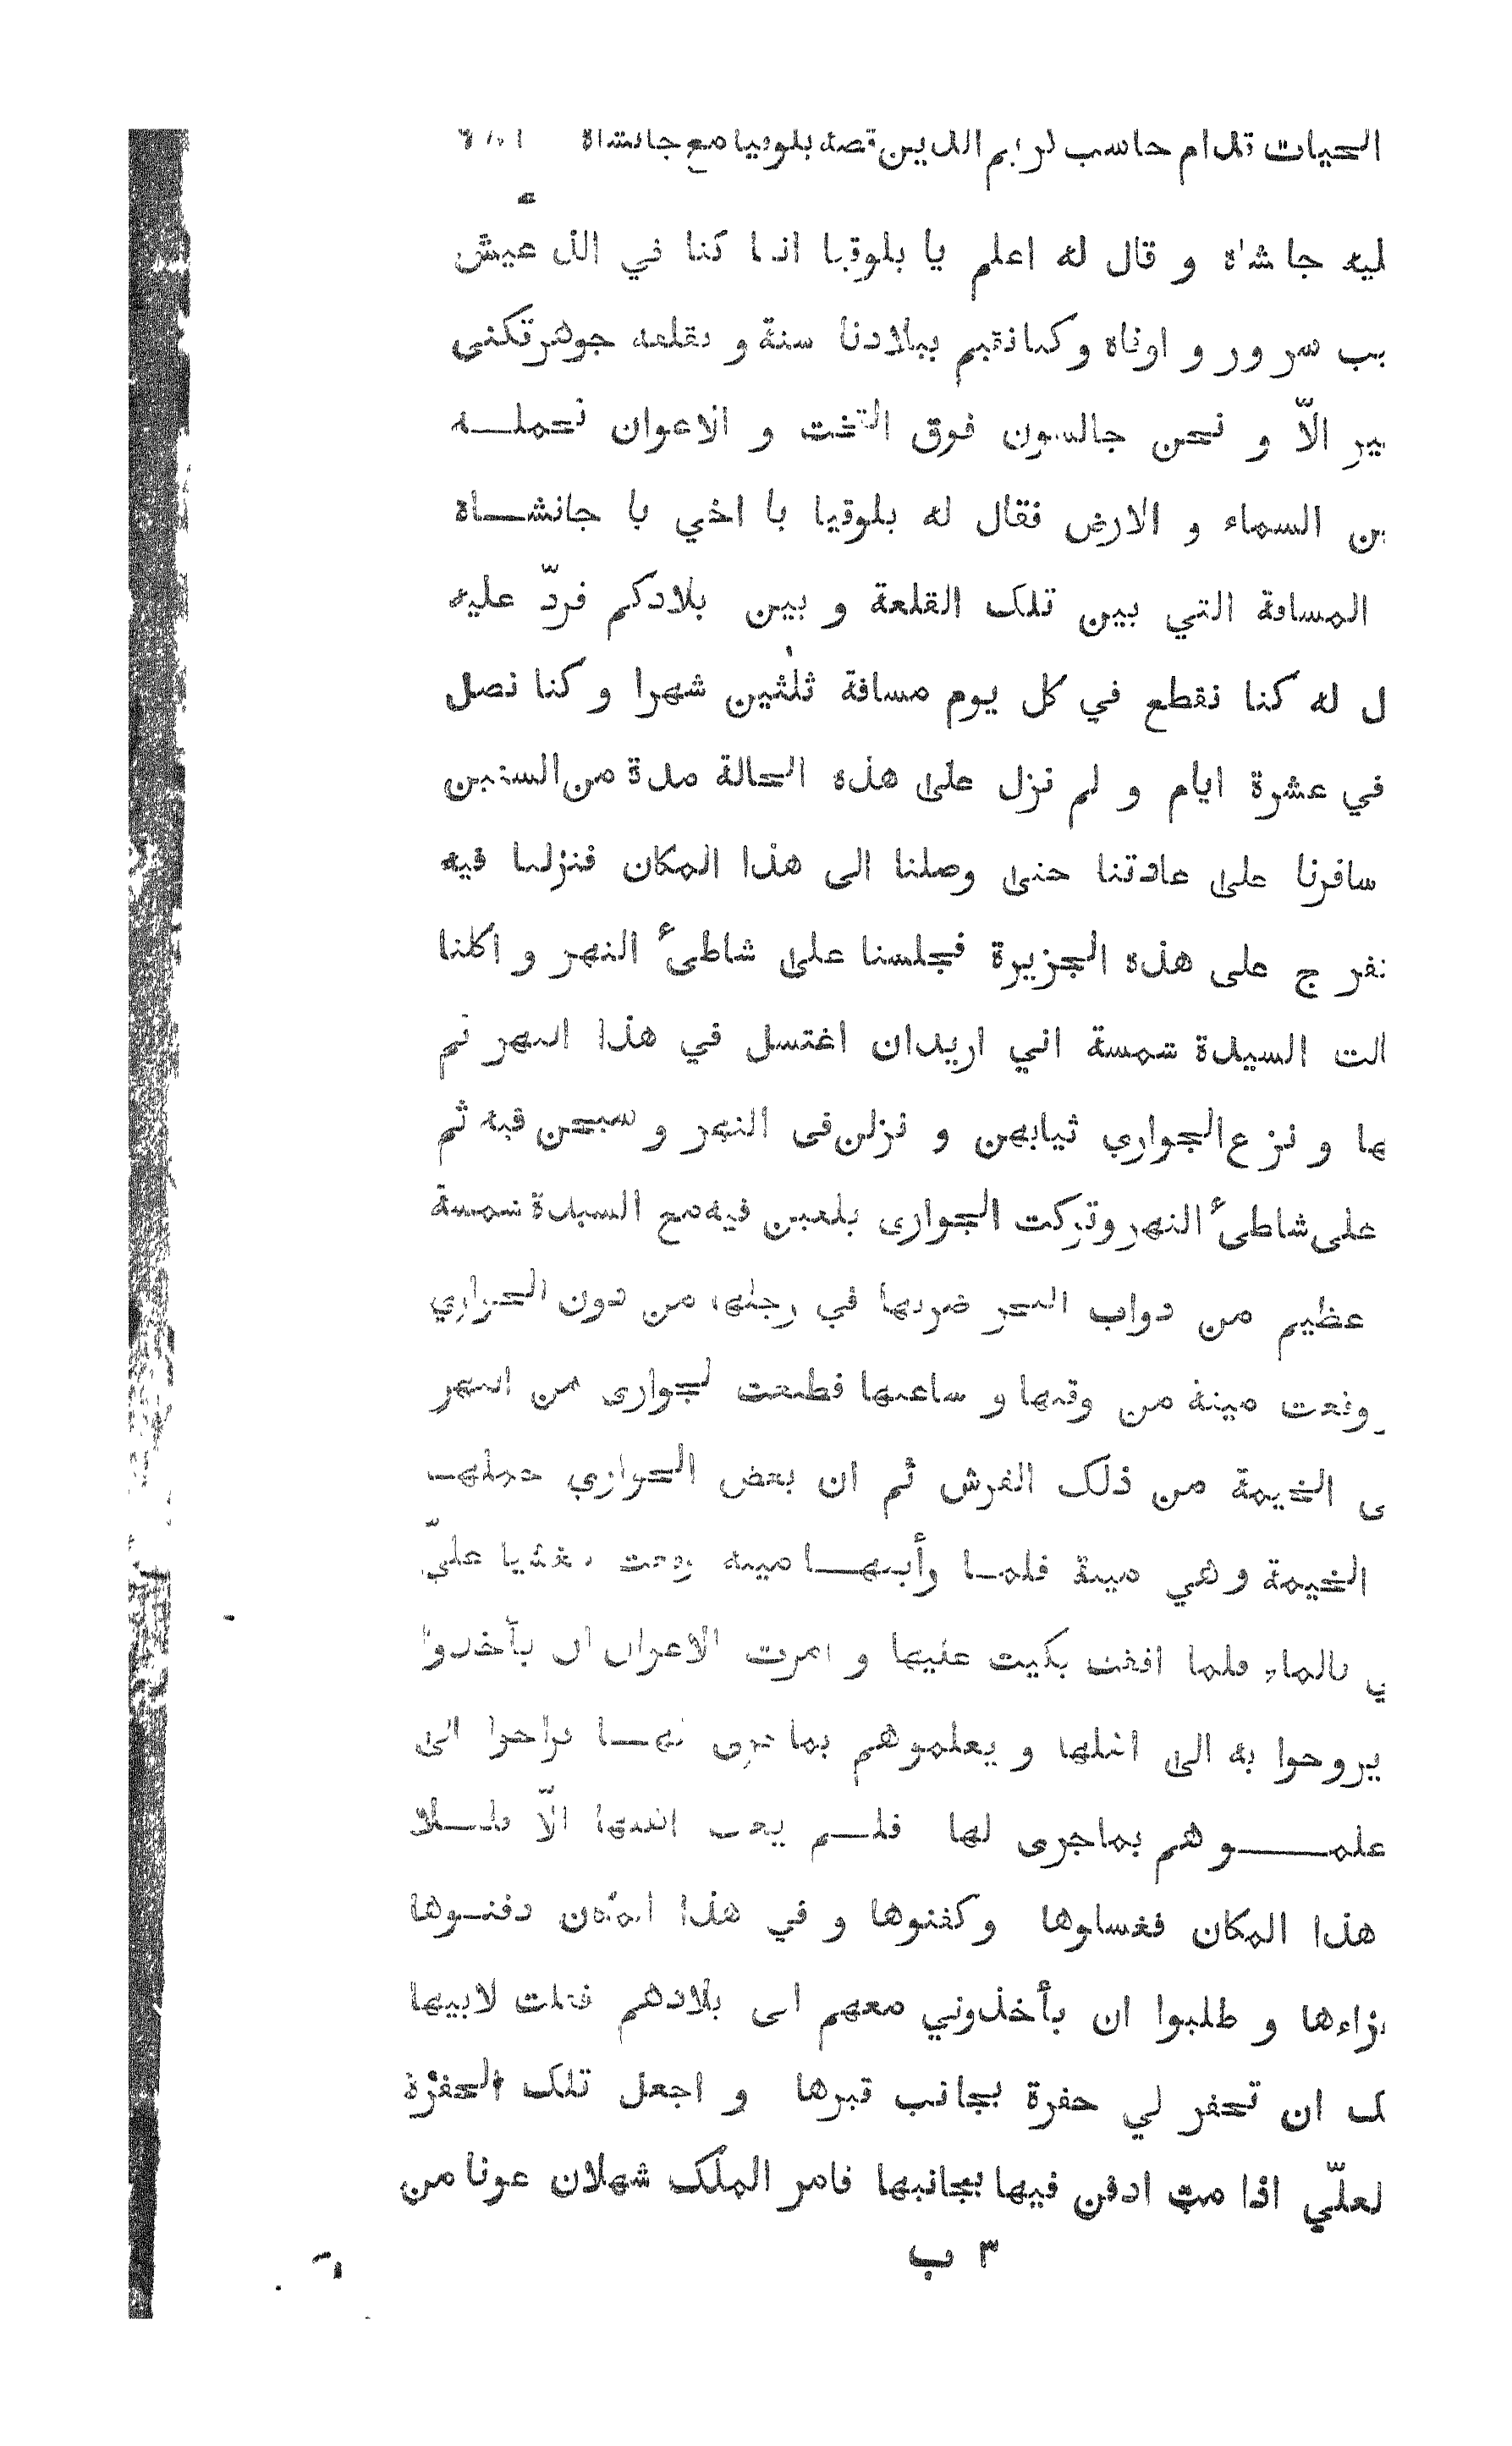 الحيات قدام حاسب كريم الدين قصة بلوقيا مع جانشاة
ليه جانشاة و قال له اعلم يا بلوقيا اننا كنا في الذ عيش
يب سرور و اوفاه وكنا نقيم ببلادنا سنة و بقلعة جوهرتكنى
ير الاّ و نحن جالسون فوق التخت و الاعوان تحملـــه
ين السماء و الارض فقال له بلوقيا يا اخي يا جانشــاة
المسافة التي بين تلك القلعة و بين بلادكم فردّ عليه
ل له كنا نقطع في كل يوم مسافة ثلثين شهرا و كنا نصل
في عشرة ايام و لم نزل على هذه الحالة مدة من السنين
سافرنا على عادتنا حتى وصلنا الى هذا المكان فنزلنا فيه
نفرج على هذه الجزيرة فجلسنا على شاطئ النهر و اكلنا
الت السيدة شمسة اني اريدان اغتسل في هذا النهر ثم
ها و نزع الجواري ثيابهن و نزلن فى النهر و سبحن فيه ثم
على شاطئ النهر وتركت الجوارى يلعبن فيه مع السيدة شمسة
عظيم من دواب البحر ضربها في رجلها من دون الجواري
وقعت ميتة من وقتها و ساعتها فطلعت لجوارى من النهر
ى الخيمة من ذلك القرش ثم ان بعض الجواري حملهـــ
الخيمة وهي ميتة فلمــا رأيتهـــا ميتة وقعت مغشيا عليّ
ي بالماء فلما افقت بكيت عليها و امرت الاعوان ان يأخذوا
يروحوا به الى اهلها و يعلموهم بما جرى لهــا فراحوا الى
علمـــــوهم بماجرى لها فلـــم يغب اهلها الاّ قليــلا
هذا المكان فغسلوها و كفنوها و في هذا المكان دفنــوها
زاءها و طلبوا ان يأخذوني معهم الى بلادهم فقلت لابيها
ك ان تحفر لي حفرة بجانب قبرها و اجعل تلك الحفرة
لعلّي اذا مت ادفن فيها بجانبها فامر الملك شهلان عونا من
٣ ب